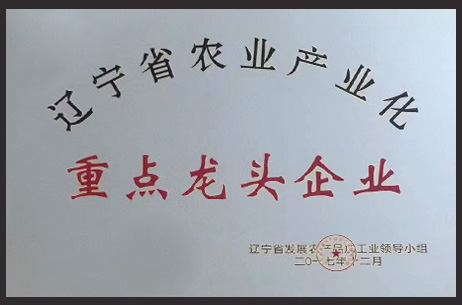 辽宁省农业产业化
重点龙头企业
辽宁省发展农产品加工业领导小组
二〇一七年十二月